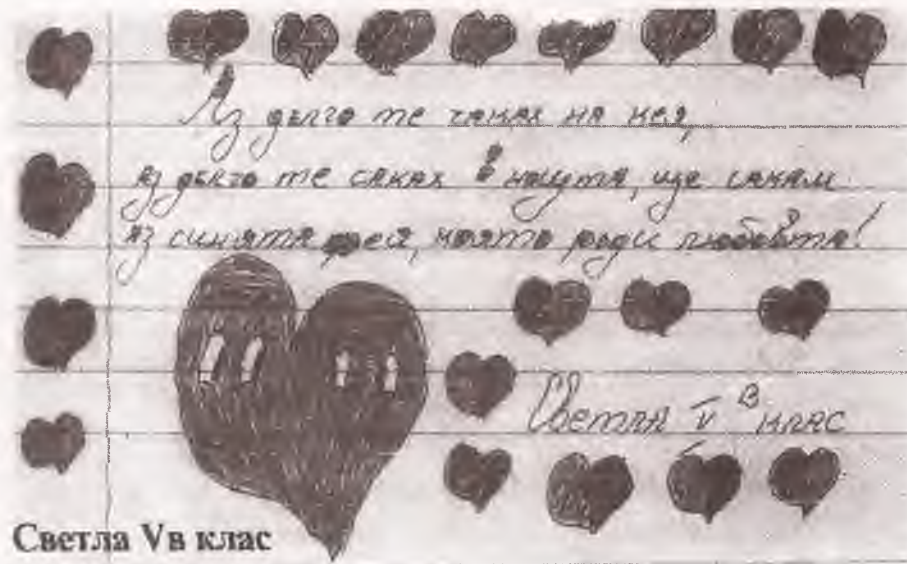 Аз дълго те чаках на кея,
аз дълго те чаках в нощта, ще чакам
аз синята фея, която роди любовта!
Светла V в клас
Светла Vв клас